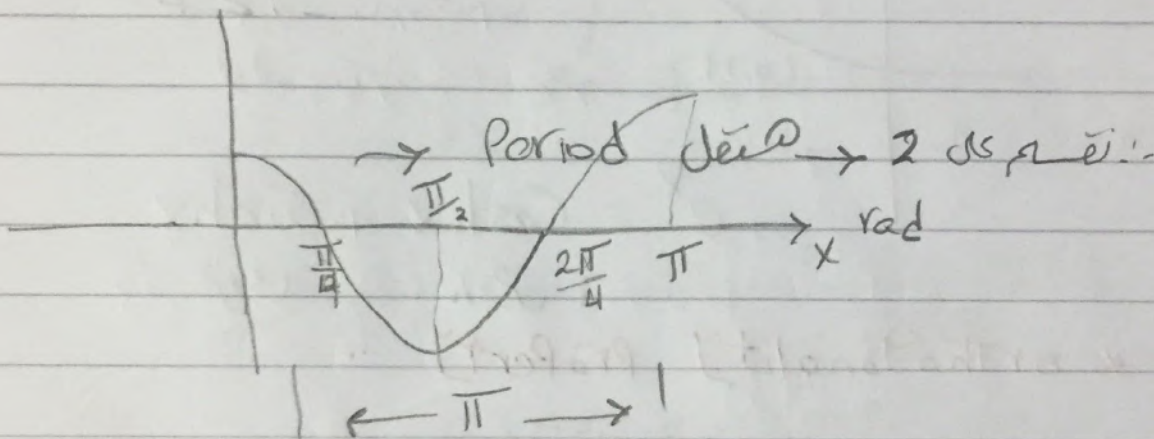 → Period هتقل → 2 نقسم كل ∴
π/2
π/4 2π/4 π x rad
← π →